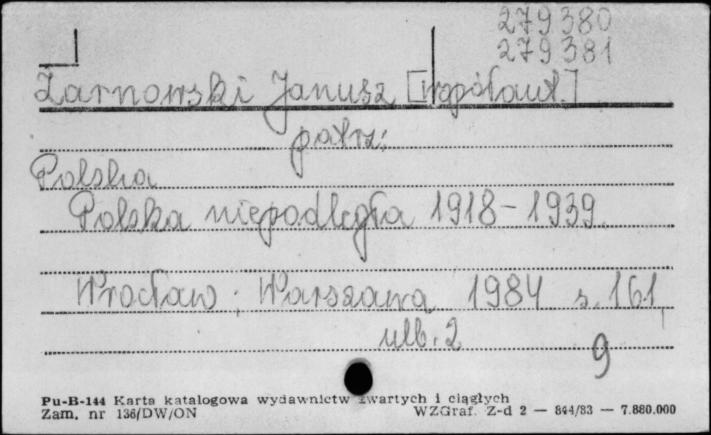 279380
279381
Żarnowski Janusz [współaut.]
patrz:
Polska
Polska niepodległa 1918-1939.
Wrocław; Warszawa 1984 s. 161,
nlb. 2
9
Pu-B-144 Karta katalogowa wydawnictw zwartych i ciągłych
Zam. nr 136/DW/ON WZGraf. Z-d 2 — 844/83 — 7.880.000